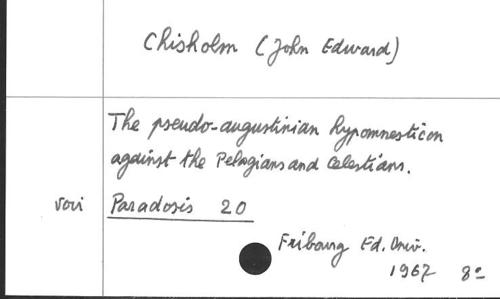 Chisholm (John Edward)
The pseudo-augustinian hypomnesticon
against the Pelagians and Celestians.
voir Paradosis 20
Fribourg Ed. Univ.
1967 8º